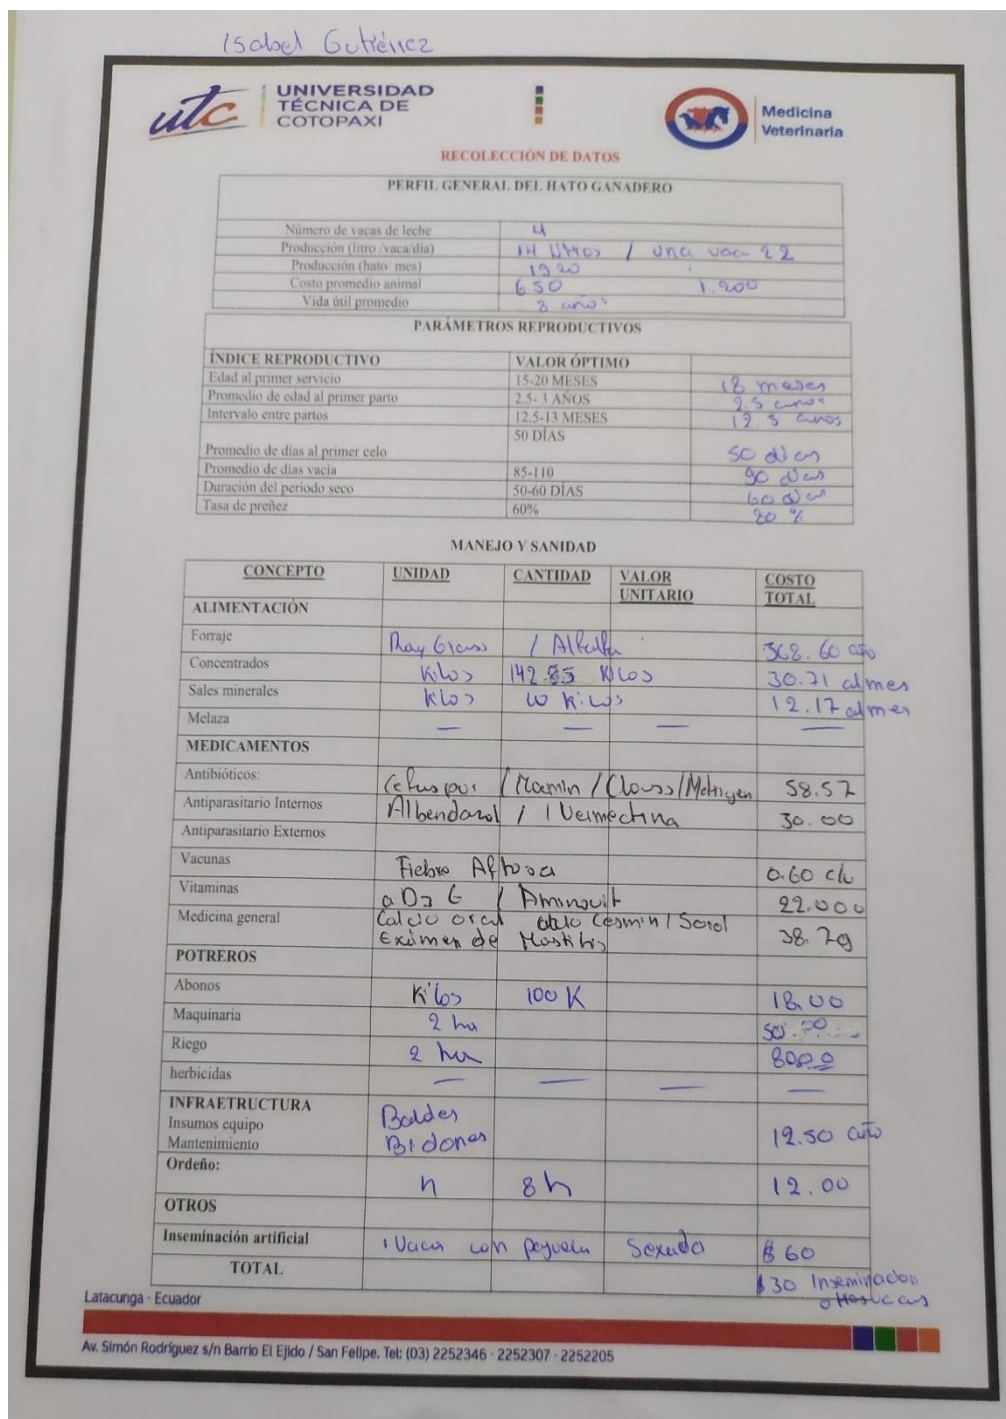 Isabel Gutiérrez
utc UNIVERSIDAD TÉCNICA DE COTOPAXI
Medicina Veterinaria
RECOLECCIÓN DE DATOS
PERFIL GENERAL DEL HATO GANADERO
Número de vacas de leche 4
Producción (litro /vaca/día) 14 litros / una vaca 22
Producción (hato/ mes) 1920
Costo promedio animal 650 1.200
Vida útil promedio 8 años
PARÁMETROS REPRODUCTIVOS
ÍNDICE REPRODUCTIVO VALOR ÓPTIMO
Edad al primer servicio 15-20 MESES 18 meses
Promedio de edad al primer parto 2.5- 3 AÑOS 2.5 años
Intervalo entre partos 12.5-13 MESES 12.5 años
Promedio de días al primer celo 50 DÍAS 50 días
Promedio de días vacía 85-110 90 días
Duración del periodo seco 50-60 DÍAS 60 días
Tasa de preñez 60% 80 %
MANEJO Y SANIDAD
CONCEPTO UNIDAD CANTIDAD VALOR UNITARIO COSTO TOTAL
ALIMENTACIÓN
Forraje Ray Grass / Alfalfa 368.60 año
Concentrados Kilos 142.85 Kilos 30.71 al mes
Sales minerales Kilos 10 Kilos 12.17 al mes
Melaza — — — —
MEDICAMENTOS
Antibióticos: / / / Metrigen 58.57
Antiparasitario Internos Albendazol / Ivermectina 30.00
Antiparasitario Externos
Vacunas Fiebre Aftosa 0.60 c/u
Vitaminas aD3 E / Aminovit 22.000
Medicina general Calcio oral
Exámen de Mastitis 38.79
POTREROS
Abonos Kilos 100 K 18.00
Maquinaria 2 ha 50.00
Riego 2 ha
herbicidas — — — —
INFRAETRUCTURA
Insumos equipo Baldes
Mantenimiento Bidones 12.50 año
Ordeño: h 8h 12.00
OTROS
Inseminación artificial 1 Vaca con pajuela Sexada $ 60
TOTAL $30 Inseminacion
otras vacas
Latacunga - Ecuador
Av. Simón Rodríguez s/n Barrio El Ejido / San Felipe. Tel: (03) 2252346 - 2252307 - 2252205